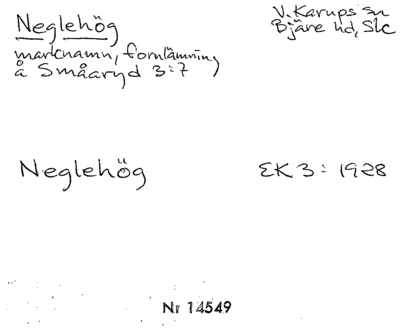 Neglehög
V. Karups sn
Bjäre hd, Slc
marknamn, fornlämning
å Småaryd 3:7
Neglehög
EK 3: 1928
Nr 14549